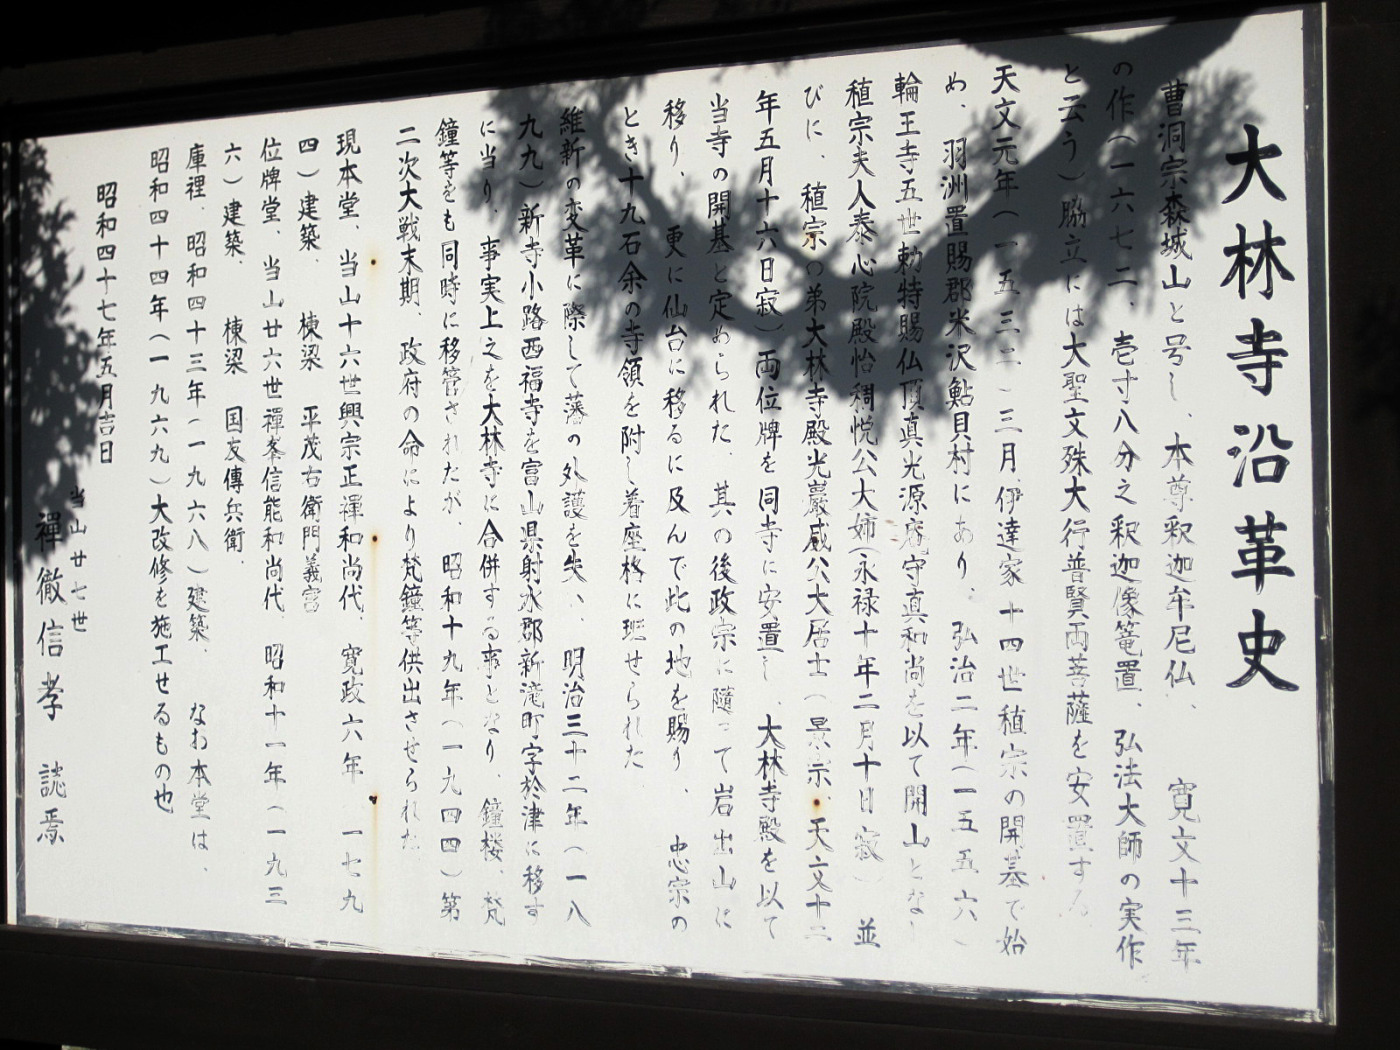 大林寺沿革史
曹洞宗森城山と号し、本尊釈迦牟尼仏、寛文十三年
の作（一六七二、壱寸八分之釈迦像篭置、弘法大師の実作
と云う）脇立には大聖文殊大行普賢両菩薩を安置する
天文元年（一五三二）三月、伊達家十四世稙宗の開基で始
め、羽洲置賜郡米沢鮎貝村にあり、弘治二年（一五五六）
輪王寺五世勅特賜仏頂真光源庵守真和尚を以て開山となし
稙宗夫人泰心院殿怡稠悦公大姉（永禄十年二月十日寂）並
びに、稙宗の弟大林寺殿光巖威公大居士（景宗、天文十二
年五月十六日寂）両位牌を同寺に安置し、大林寺殿を以て
当寺の開基と定められた、其の後政宗に隨って岩出山に
移り、更に仙台に移るに及んで此の地を賜り、忠宗の
とき十九石余の寺領を附し着座格に班せられた
維新の変革に際して藩の外護を失い、明治三十二年（一八
九九）新寺小路西福寺を富山県射水郡新湊町字於津に移す
に当り、事実上之を大林寺に合併する事となり、鐘楼、梵
鐘等をも同時に移管されたが、昭和十九年（一九四四）第
二次大戦末期、政府の命により梵鐘等供出させられた
現本堂、当山十六世興宗正禅和尚代、寛政六年一七九
四）建築、棟梁　平茂右衛門義宮
位牌堂、当山廿六世禅峯信能和尚代、昭和十一年（一九三
六）建築、棟梁　国友傳兵衛、
庫裡、昭和四十三年（一九六八）建築、なお本堂は、
昭和四十四年（一九六九）大改修を施工せるもの也
昭和四十七年五月吉日
当山廿七世
禅徹信孝　誌焉